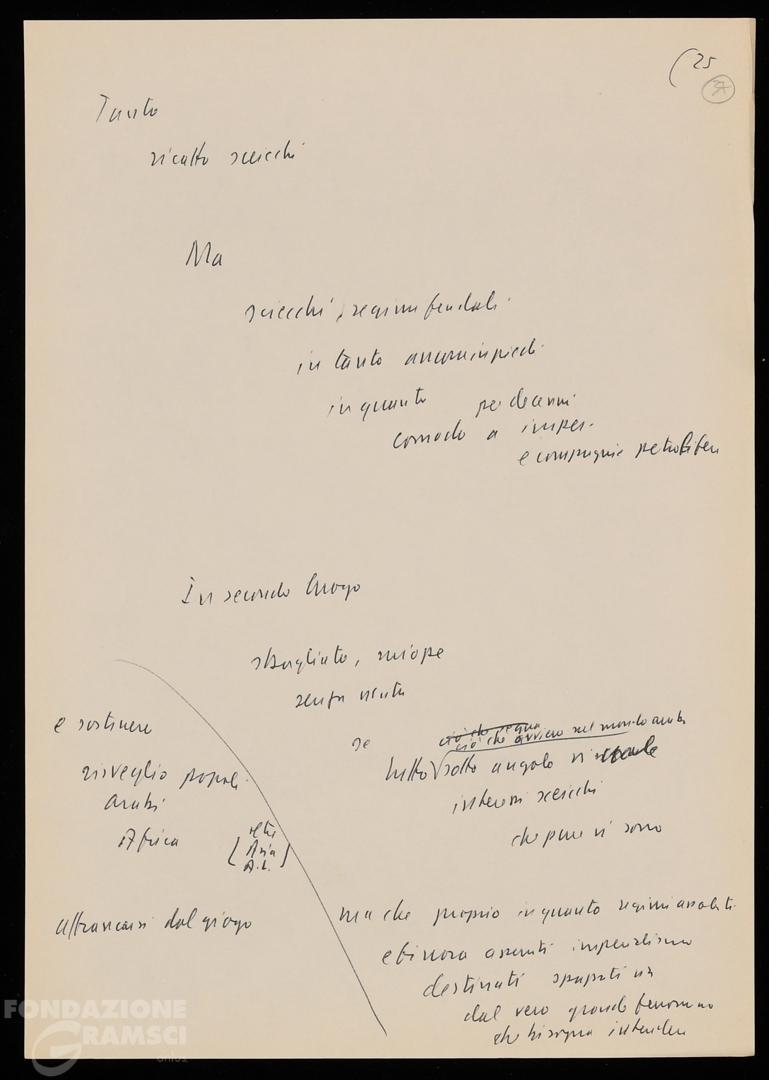 (25
37
Tanto
ricatto sceicchi
Ma
sceicchi, regimi feudali
in tanto ancora in piedi
in quanto per decenni
comodo a imper.
e compagnie petrolifere
In secondo luogo
sbagliato, miope
senza uscita
se
ciò che segna
ciò che avviene nel mondo arabo
tutto sotto angolo visuale
interessi sceicchi
che pure vi sono
ma che proprio in quanto regimi assoluti
e finora asserviti imperialismo
destinati spazzati via
dal vero grande fenomeno
che bisogna intendere
e sostenere
risveglio popoli
arabi
Africa
[oltre
Asia
A.L.]
affrancarsi dal giogo
FONDAZIONE
GRAMSCI
onlus